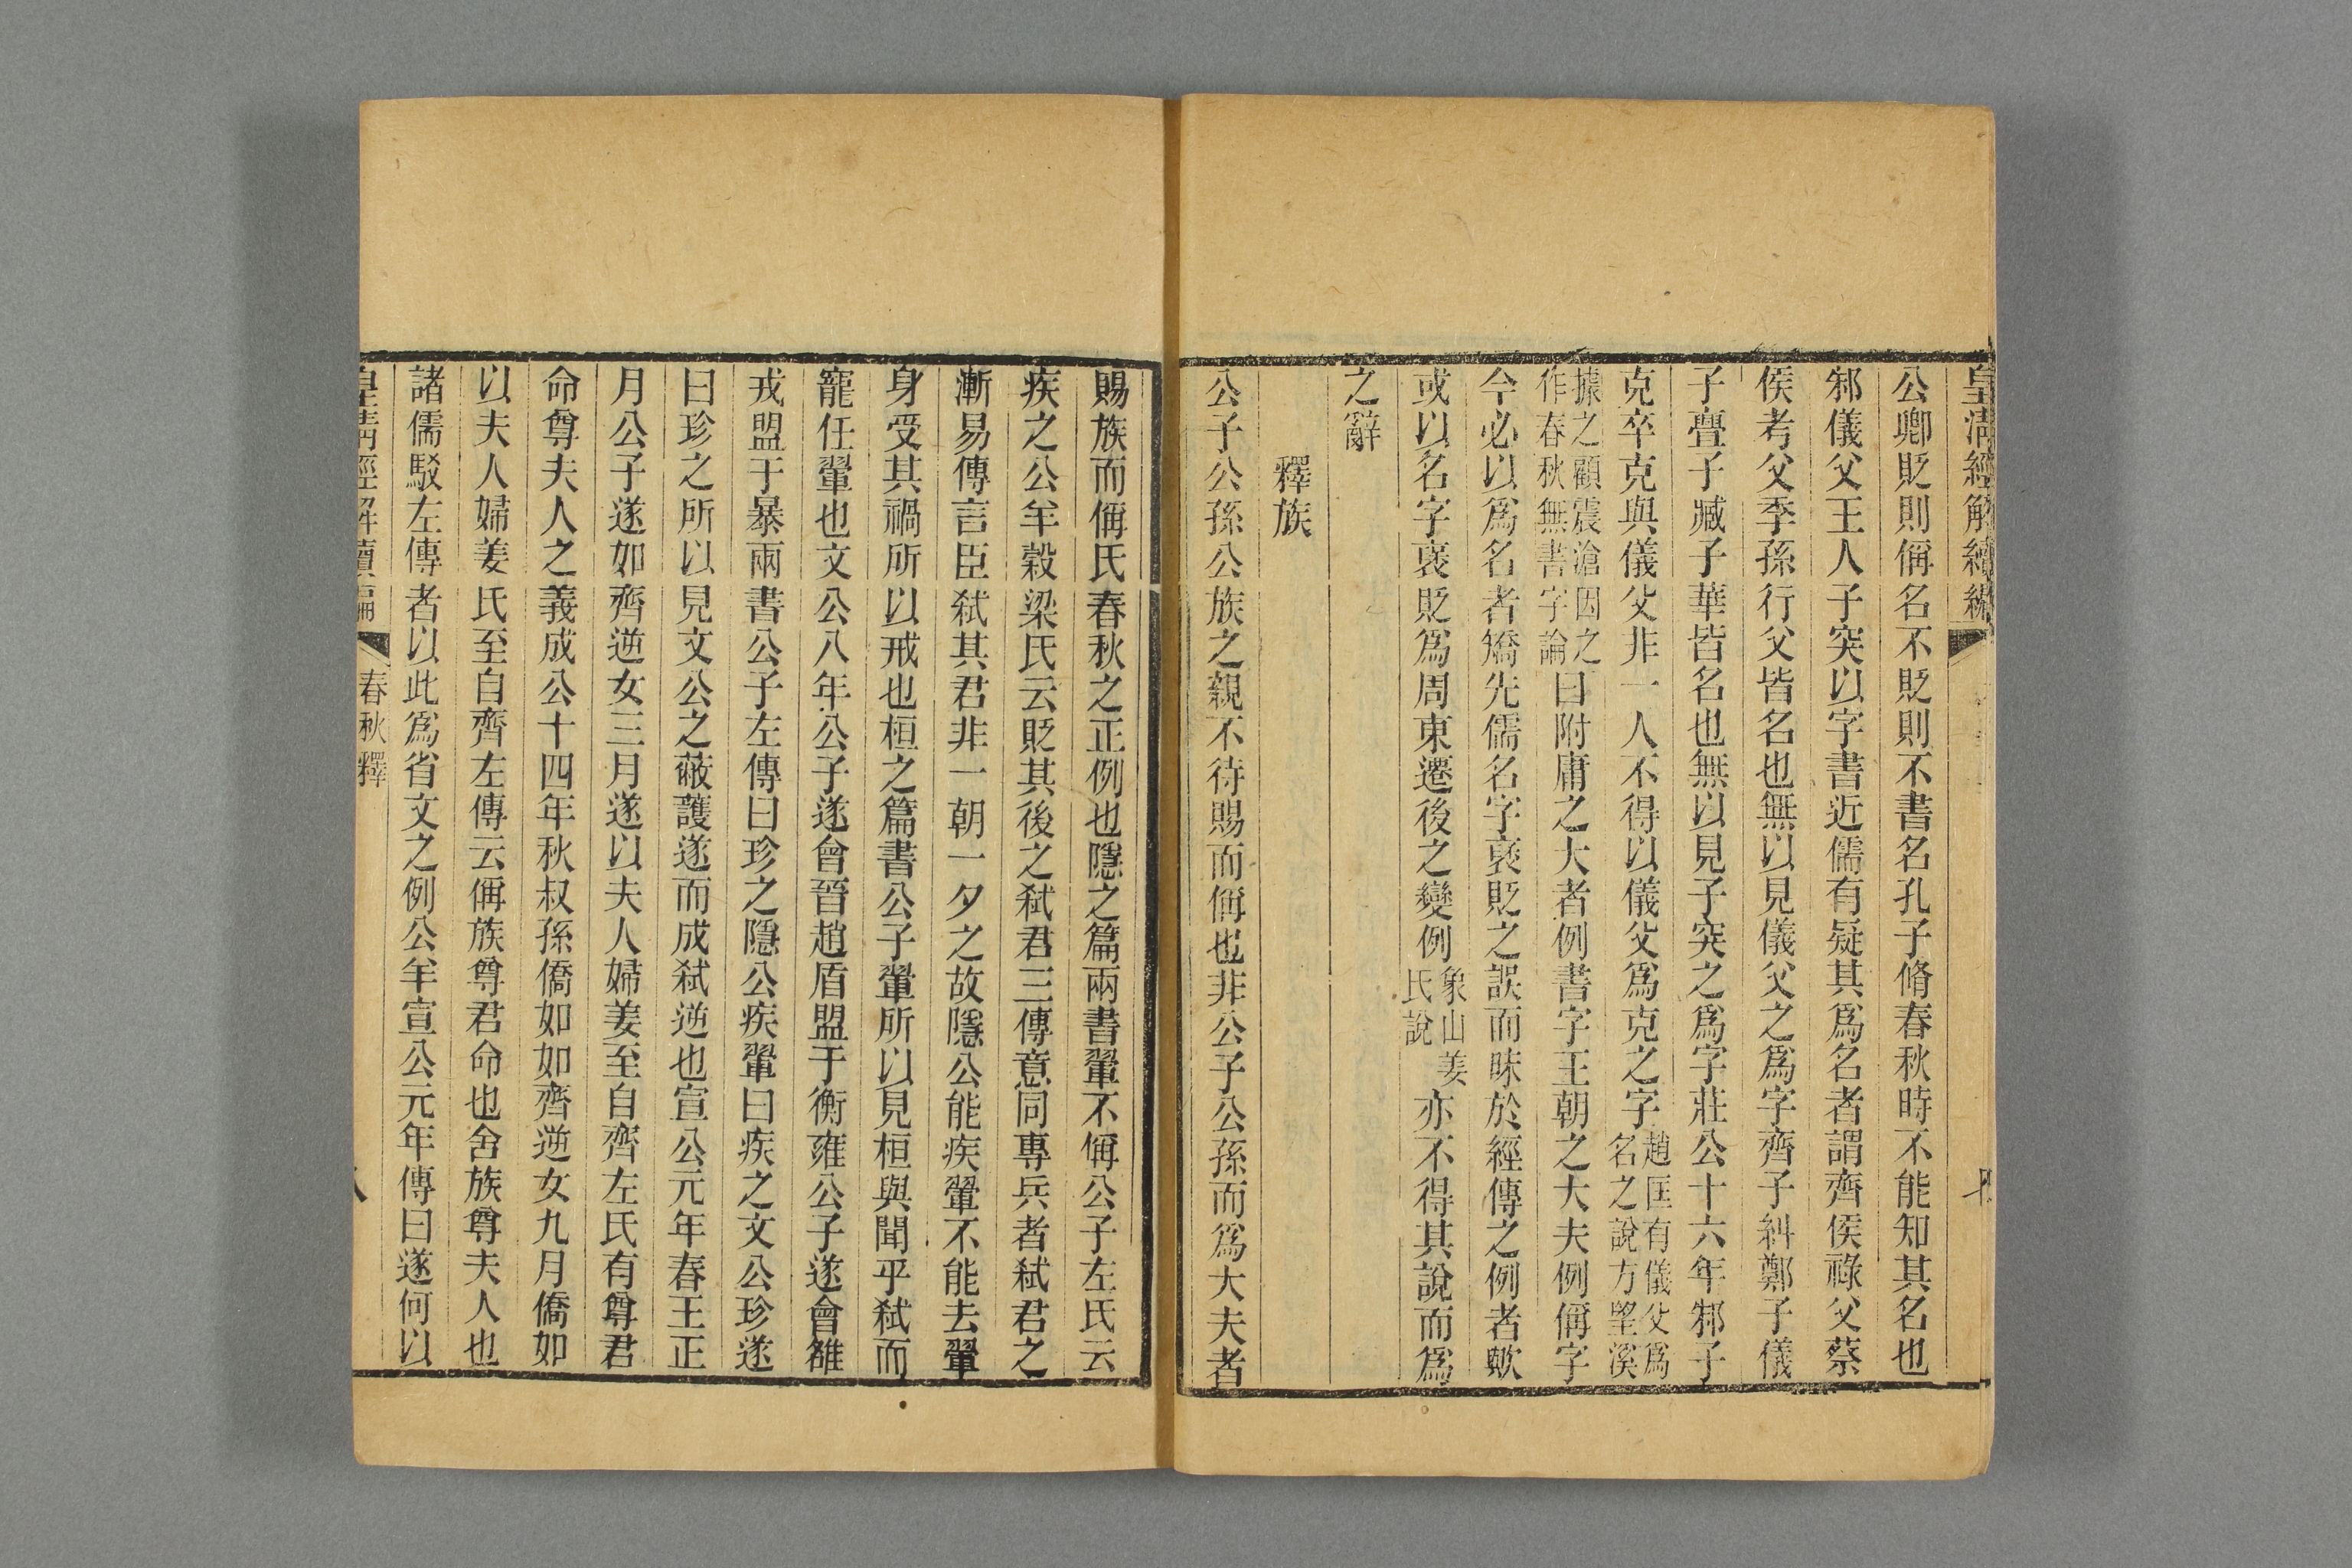 皇清經解續編
公卿貶則偁名不貶則不書名孔子脩春秋時不能知其名也
邾儀父王人子突以字書近儒有疑其爲名者謂齊侯祿父蔡
侯考父季孫行父皆名也無以見儀父之爲字齊子糾鄭子儀
子亹子臧子華皆名也無以見子突之爲字莊公十六年邾子
克卒克與儀父非一人不得以儀父爲克之字趙匡有儀父爲名之說方望溪
據之顧震滄因之作春秋無書字論曰附庸之大者例書字王朝之大夫例偁字
今必以爲名者矯先儒名字襃貶之誤而昧於經傳之例者歟
或以名字襃貶爲周東遷後之變例象山姜氏說亦不得其說而爲
之辭
釋族
公子公孫公族之親不待賜而偁也非公子公孫而爲大夫者
賜族而偁氏春秋之正例也隱之篇兩書翬不偁公子左氏云
疾之公羊穀梁氏云貶其後之弒君三傳意同專兵者弒君之
漸易傳言臣弒其君非一朝一夕之故隱公能疾翬不能去翬
身受其禍所以戒也桓之篇書公子翬所以見桓與聞乎弒而
寵任翬也文公八年公子遂會晉趙盾盟于衡雍公子遂會雒
戎盟于暴兩書公子左傳曰珍之隱公疾翬曰疾之文公珍遂
曰珍之所以見文公之蔽護遂而成弒逆也宣公元年春王正
月公子遂如齊逆女三月遂以夫人婦姜至自齊左氏有尊君
命尊夫人之義成公十四年秋叔孫僑如如齊逆女九月僑如
以夫人婦姜氏至自齊左傳云偁族尊君命也舍族尊夫人也
諸儒駁左傳者以此爲省文之例公羊宣公元年傳曰遂何以
皇清經解續編 春秋釋 八